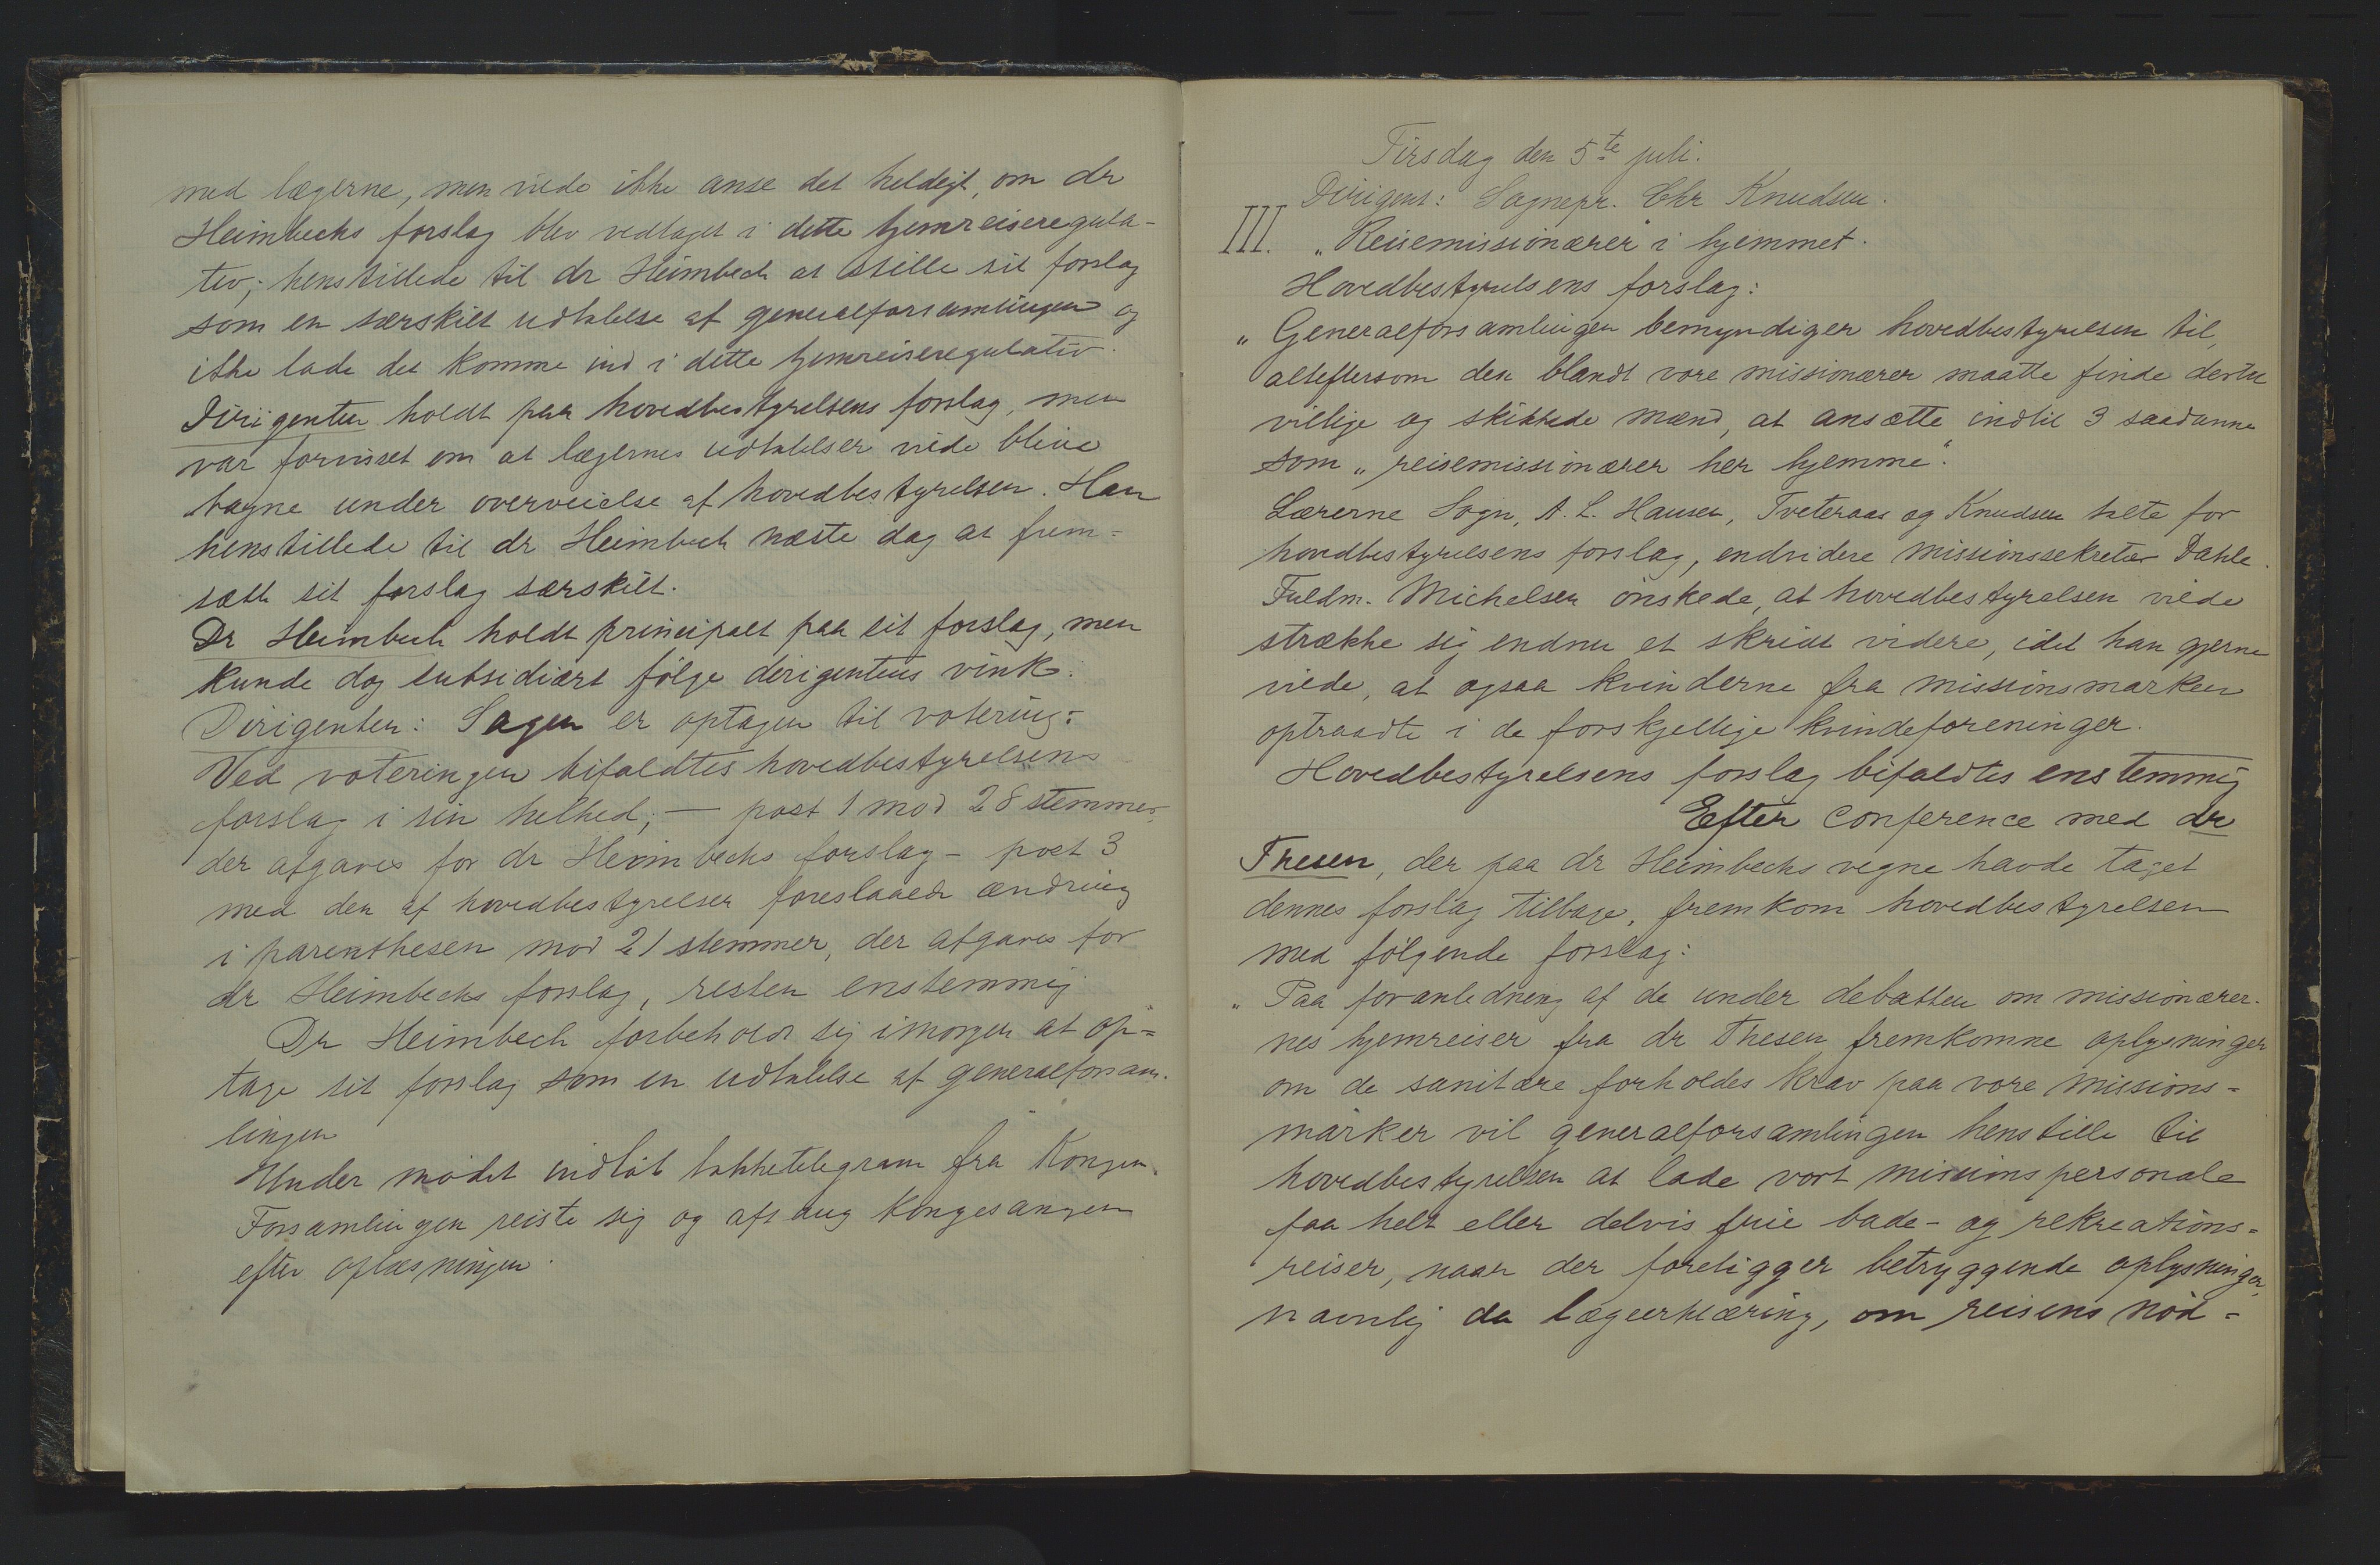 med lægerne, men vilde ikke anse det heldigt, om dr
Heimbecks forslag blev vedtaget i dette hjemreiseregula-
tiv; henstillede til dr Heimbeck at stille sit forslag
som en særskilt udtalelse af generalforsamlingen og
ikke lade det komme ind i dette hjemreiseregulativ.
Dirigenten holdt paa hovedbestyrelsens forslag, men
var forvisset om at lægernes udtalelser vilde blive
tagne under overveielse af hovedbestyrelsen. Han
henstillede til dr Heimbeck næste dag at frem=
sætte sit forslag særskilt.
Dr Heimbech holdt principalt paa sit forslag, men
kunde dog subsidiært følge dirigentens vink.
Dirigenten: Sagen er optagen til votering:
Ved voteringen bifaldtes hovedbestyrelsens
forslag i sin helhed; — post 1 mod 28 stemmer,
der afgaves for dr Heimbechs forslag – post 3
med den af hovedbestyrelsen foreslaaede ændring
i parenthesen mod 21 stemmer, der afgaves for
dr Heimbechs forslag, resten enstemmig
Dr Heimbech forbeholdt sig imorgen at op=
tage sit forslag som en udtalelse af generalforsam-
lingen
Under mødet indløb takketelegram fra Kongen.
Forsamlingen reiste sig og afsang Kongesangen
efter oplæsningen.
Tirsdag den 5te juli.
Dirigent: Sognepr. Chr Knudsen.
III. „Reisemissionærer" i hjemmet.
Hovedbestyrelsens forslag:
„Generalforsamlingen bemyndiger hovedbestyrelsen til,
alteftersom den blandt vore missionærer maatte finde dertil
villige og skikkede mænd, at ansætte indtil 3 saadanne
som „reisemissionærer her hjemme".
Lærerne Sogn, A. L. Hansen, Tveteraas og Knudsen talte for
hovedbestyrelsens forslag, endvidere missionssekretær Dahle.
Fuldm. Michelsen ønskede, at hovedbestyrelsen vilde
strække sig endnu et skridt videre, idet han gjerne
vilde, at ogsaa kvinderne fra missionsmarken
optraadte i de forskjellige kvindeforeninger.
Hovedbestyrelsens forslag bifaldtes enstemmig
Efter conference med dr
Thesen, der paa dr Heimbechs vegne havde taget
dennes forslag tilbage, fremkom hovedbestyrelsen
med følgende forslag:
„Paa foranledning af de under debatten om missionærer-
nes hjemreiser fra dr Thesen fremkomne oplysninger
om de sanitære forholdes krav paa vore missions=
marker vil generalforsamlingen henstille til
hovedbestyrelsen at lade vort missionspersonale
faa helt eller delvis frie bade- og rekreations=
reiser, naar der foreligger betryggende oplysninger,
navnlig da lægeerklæring, om reisens nød=